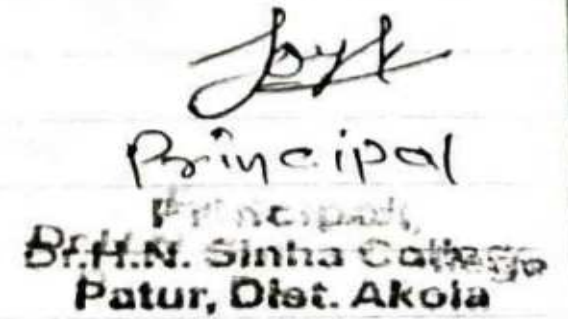 Principal
Principal,
Dr.H.N. Sinha College
Patur, Dist. Akola